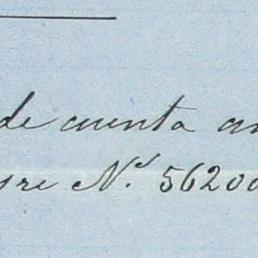 de cuenta an
re Nº 56200